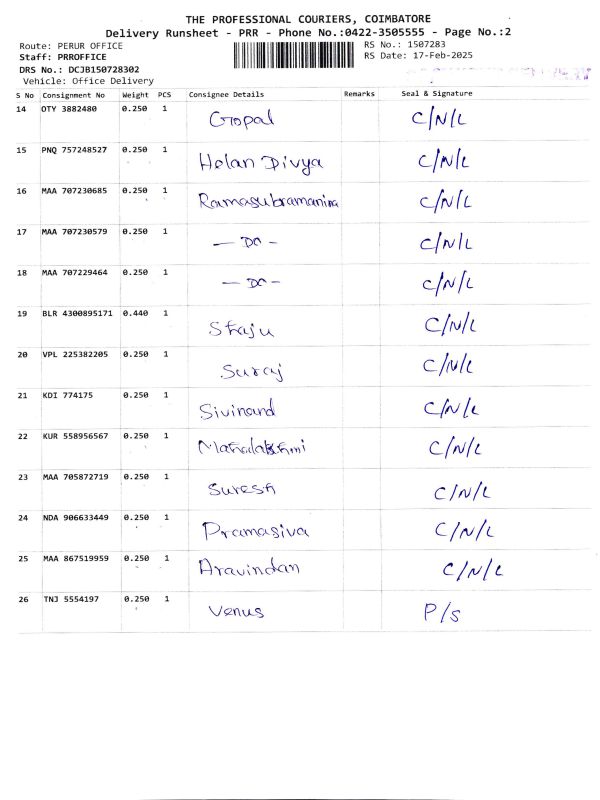 THE PROFESSIONAL COURIERS, COIMBATORE
Delivery Runsheet - PRR - Phone No.:0422-3505555 - Page No.:2
Route: PERUR OFFICE
Staff: PRROFFICE
DRS No.: DCJB150728302
Vehicle: Office Delivery
RS No.: 1507283
RS Date: 17-Feb-2025
S No Consignment No Weight PCS Consignee Details Remarks Seal & Signature
14 OTY 3882480 0.250 1 Gopal C/N/L
15 PNQ 757248527 0.250 1 Helan Divya C/N/L
16 MAA 707230685 0.250 1 Ramasubramanina C/N/L
17 MAA 707230579 0.250 1 — DO - C/N/L
18 MAA 707229464 0.250 1 — DO - C/N/L
19 BLR 4300895171 0.440 1 Shaju C/N/L
20 VPL 225382205 0.250 1 Suraj C/N/L
21 KDI 774175 0.250 1 Sivinand C/N/L
22 KUR 558956567 0.250 1 Mahalakshmi C/N/L
23 MAA 705872719 0.250 1 Suresh C/N/L
24 NDA 906633449 0.250 1 Pramasiva C/N/L
25 MAA 867519959 0.250 1 Aravindan C/N/L
26 TNJ 5554197 0.250 1 Venus P/S